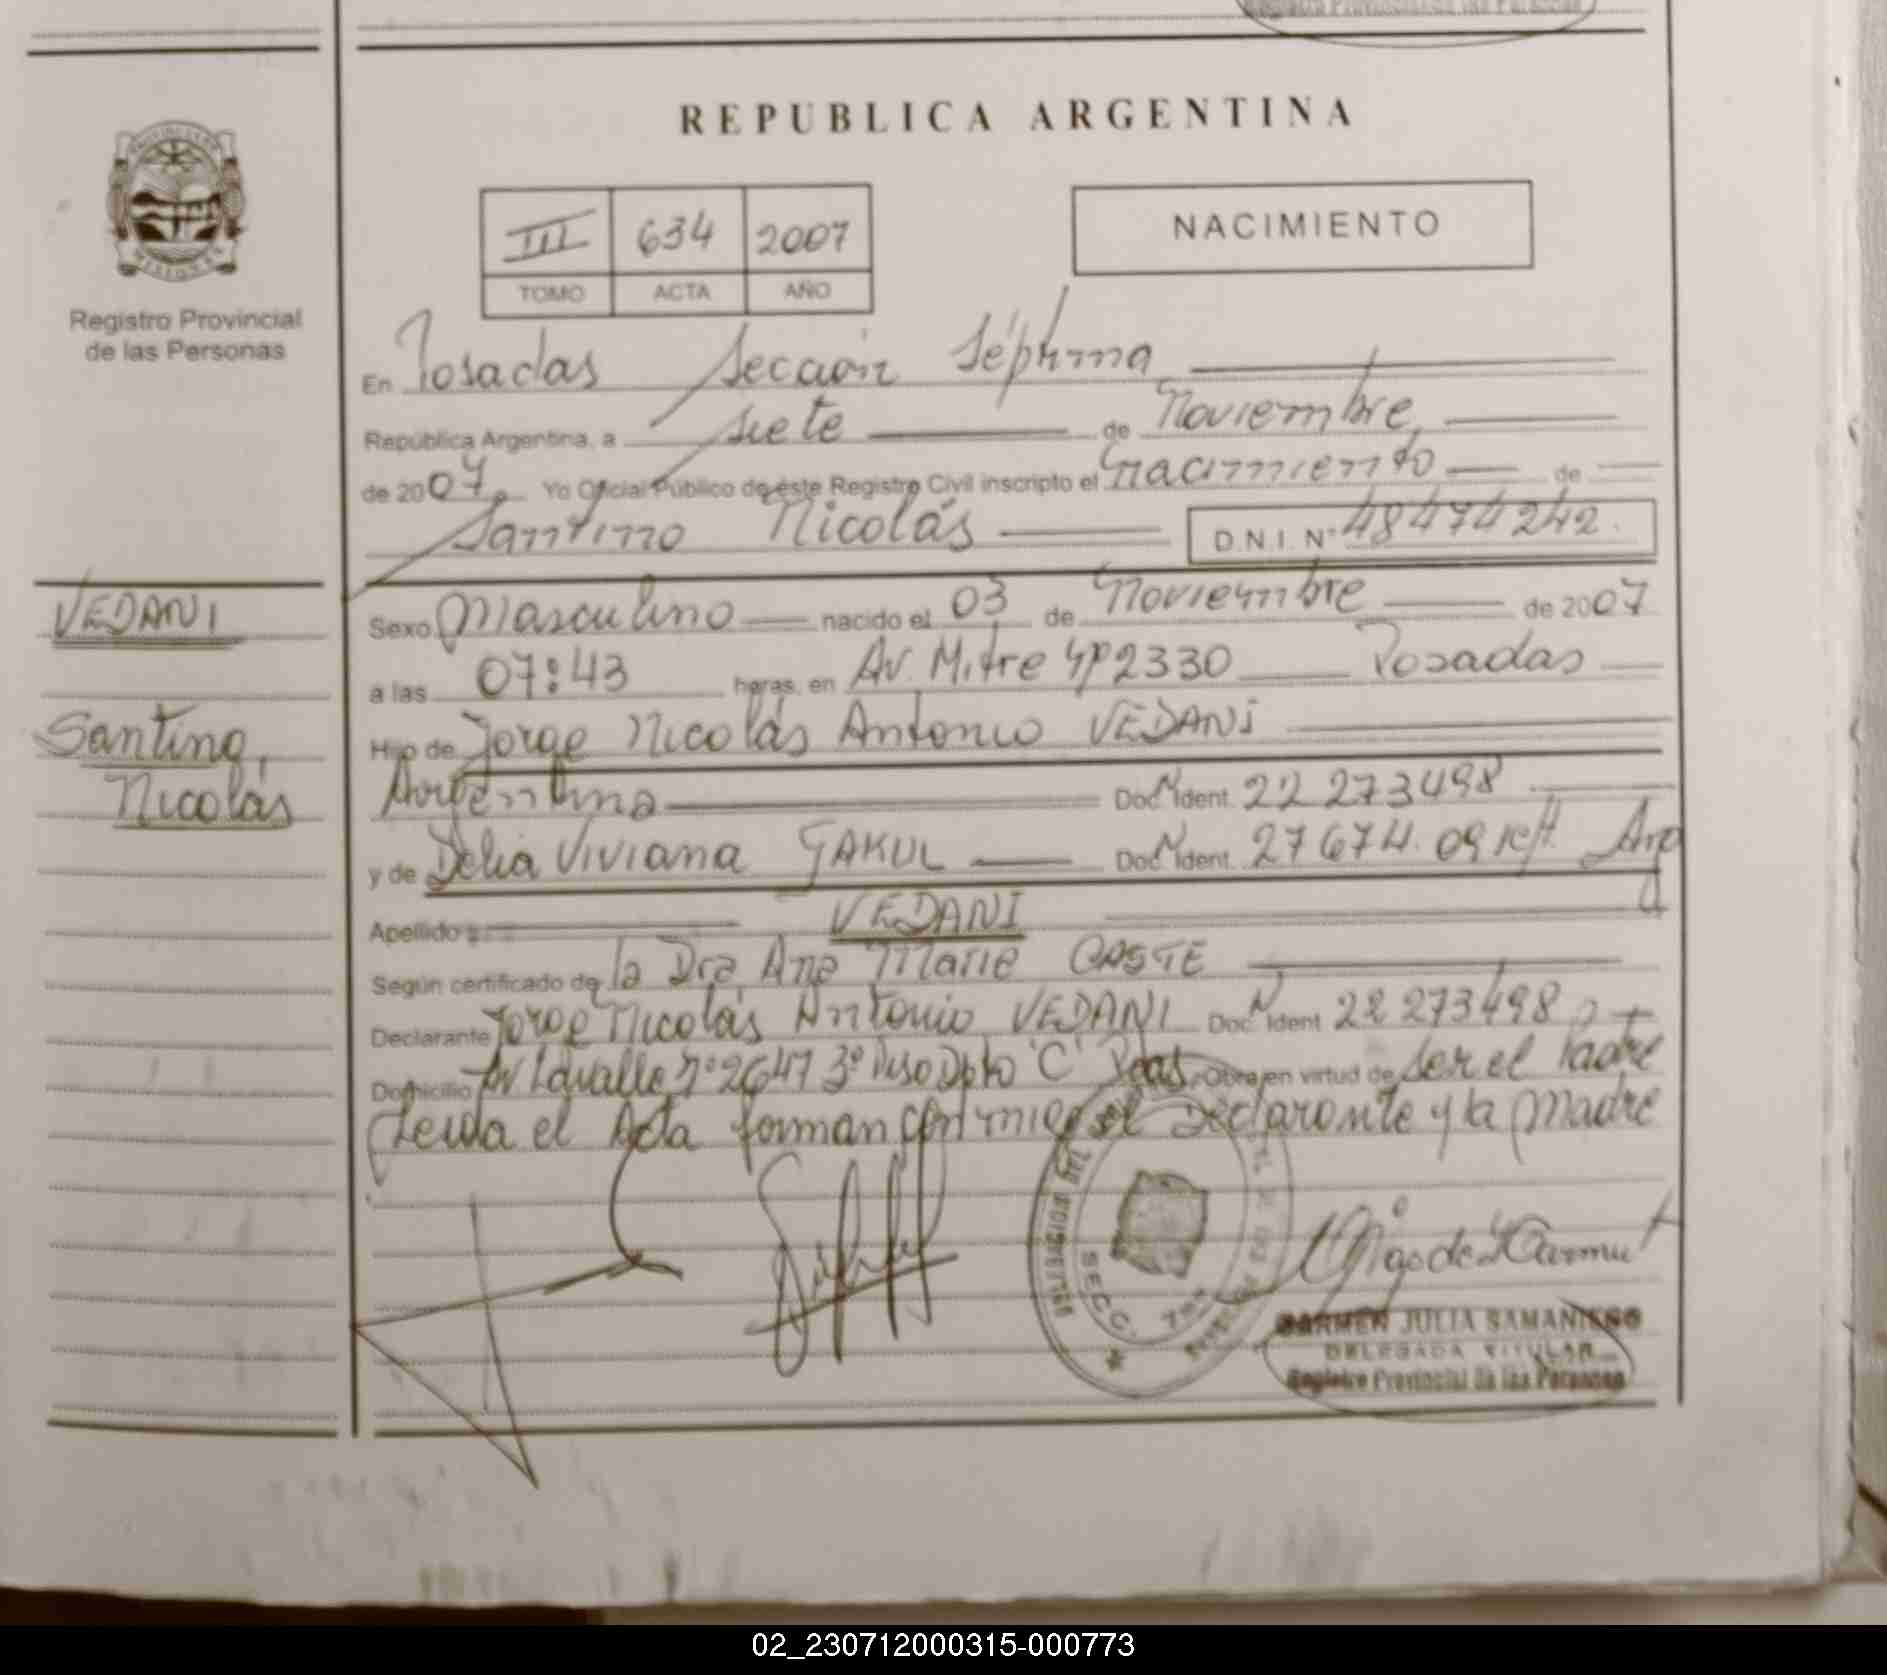 Registro Provincial de las Personas
REPUBLICA ARGENTINA
PROVINCIA DE
MISIONES
Registro Provincial
de las Personas
III 634 2007
TOMO ACTA AÑO
NACIMIENTO
En Posadas Sección Séptima
República Argentina, a siete de Noviembre
de 2007. Yo Oficial Público de éste Registro Civil inscripto el nacimiento de
Santino Nicolás D.N.I. Nº 48474242.
VEDANI
Santino,
Nicolás
Sexo Masculino nacido el 03 de Noviembre de 2007
a las 07:43 horas, en Av. Mitre Nº 2330 Posadas
Hijo de Jorge Nicolás Antonio VEDANI
Argentina Doc. Ident. 22 273498
y de Delia Viviana GAKUL Doc. Ident. 27 674. Arg
Apellido: VEDANI
Según certificado de la Dra Ana Marie OASTE
Declarante Jorge Nicolás Antonio VEDANI Doc. Ident 22 273498
Domicilio Av Lavalle nº 2647 3º Piso Dpto "C" Pdas. Obra en virtud de ser el Padre
Leida el Acta forman conmigo el Declarante y la Madre
SECC. 7ma
CARMEN JULIA SAMANIEGO
DELEGADA TITULAR
Registro Provincial de las Personas
02_230712000315-000773